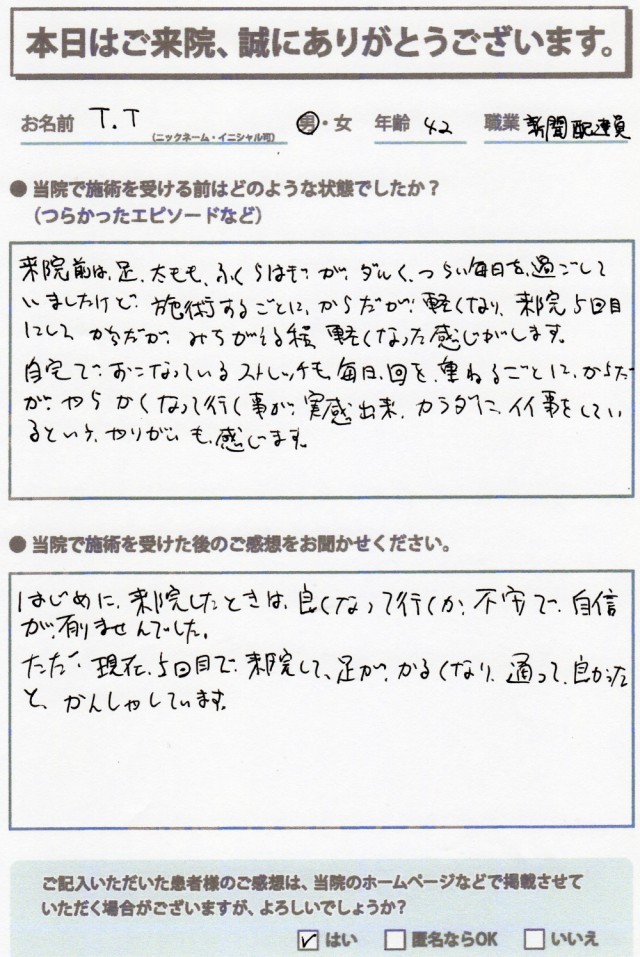 本日はご来院、誠にありがとうございます。
お名前 T.T (ニックネーム・イニシャル可) 男・女 年齢 42 職業 新聞配達員
● 当院で施術を受ける前はどのような状態でしたか？
（つらかったエピソードなど）
来院前は、足、太もも、ふくらはぎが、ダルく、つらい毎日を、過ごして
いましたけど、施術するごとに、からだが、軽くなり、来院5回目
にして、からだが、みちがえる程、軽くなった感じがします。
自宅で、おこなっているストレッチも、毎日、回を、重ねるごとに、からだ
が、やらかくなって行く事が、実感出来、カラダに、イイ事をしてい
るという、やりがいも、感じます。
● 当院で施術を受けた後のご感想をお聞かせください。
はじめに、来院したときは、良くなって行くか、不安で、自信
が、有りませんでした。
ただ、現在、5回目で、来院して、足が、かるくなり、通って、良かった
と、かんしゃしています。
ご記入いただいた患者様のご感想は、当院のホームページなどで掲載させて
いただく場合がございますが、よろしいでしょうか？
☑ はい □ 匿名ならOK □ いいえ